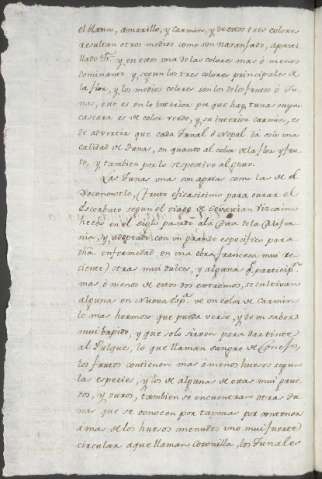 el blanco, amarillo, y Carmin, y de estos tres colores
resultan otros medios como son naranjado, aparei
llado &c. y, en estos una de los colores mas ó menos
dominante y, segun los tres colores principales de
la flor, y los medios colores son los de los frutos ó Tu-
nas, esto es en lo interior pr que hay tunas cuya
cascara es de color verde, y su interior carmin, es
de advertir que cada Tunal ó Nopal da solo una
calidad de Tunas, en quanto al color de la flor y fru-
to, y tambien por lo respectivo al gusto.
Las Tunas mas con agrias como la de el
Xoconostle, (fruto eficacisimo para curar el
Escorbuto segun el viage de Sebastian Vizcaino
hecho en el siglo pasado a la Costa de la Califor
nia, y adoptado con un grande especifico para
dha enfermedad en una obra francesa mui re-
ciente) otras mui dulces, y alguna qe participan
mas ó menos de estos dos extremos, se cultivan
alguna en Nueva Espa de un color de Carmin
lo mas hermoso que pueda verse, y de un sabor
mui insipido, y que solo sirven para dar tinte
al Pulque, lo que llaman sangre de Conejo,
los frutos contienen mas ó menos huesos segun
las especies, y los de alguna de estas mui grue
sos, y duros, tambien se encuentran otras Tu
nas que se conocen por tapona por contener
a mas de los huesos menudos uno mui fuerte
circular a que llaman Coronilla, los Tunales